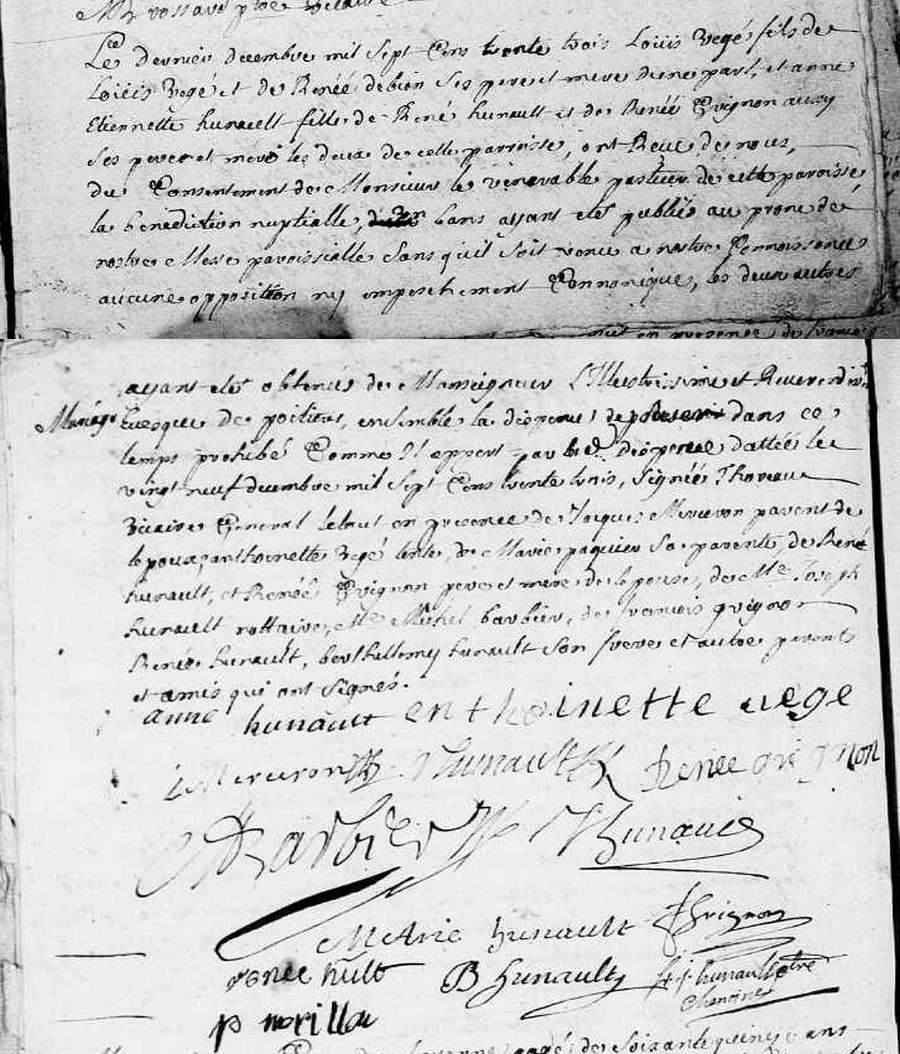 Ce dernier decembre mil sept Cens trente trois Loüis Vegé fils de
Loüis Vegé et de Renée debion Ses pere et mere d'une part, et anne
Etiennette hunault fille de René hunault et de Renée Grignon aussy
Ses pere et mere les deux de cette parroisse, ont Receu de nous,
du Consentement de Monsieur le venerable pasteur de cette paroisse
la benediction nuptialle, bans ayant eté publiés au prone de
nostre Messe paroissialle Sans qu'il Soit venu a nostre Connoissance
aucune opposition ny empeschement Cannonique, les deux autres
ayant eté obtenus de Monseigneur L'Illustrissime et Reverendis.
Mariage Evesque de poitiers, ensemble la dispense de dans ce
temps prohibé Comme Il appert par dispense dattée le
vingt neuf decembre mil Sept Cens trente trois, Signée Thoreau
Vicaire General le tout en presence de Jacques Merceron parent de
lepoux, anthoinette Vegé tente, de Marie paquier Sa parente, de René
hunault, et Renée Grignon pere et mere de lepouse, de Me Joseph
hunault nottaire, Me Michel barbier, de francois grignon
Renée hunault, berthellemy hunault Son frere et autre parents
et amis qui ont Signés.
anne hunault enthoinette vege
J Merceron R hunault Renée grignon
Barbier Hunault
MArie hunault F Grignon
renée hult B hunault hunault ptre
chanoine
p morillon